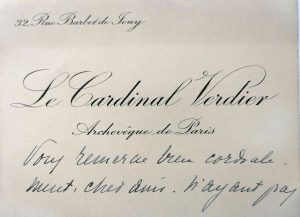 32, Rue Barbet de Jouy
Le Cardinal Verdier
Archevêque de Paris
Vous remercie bien cordiale-
ment, cher ami. N'ayant pas